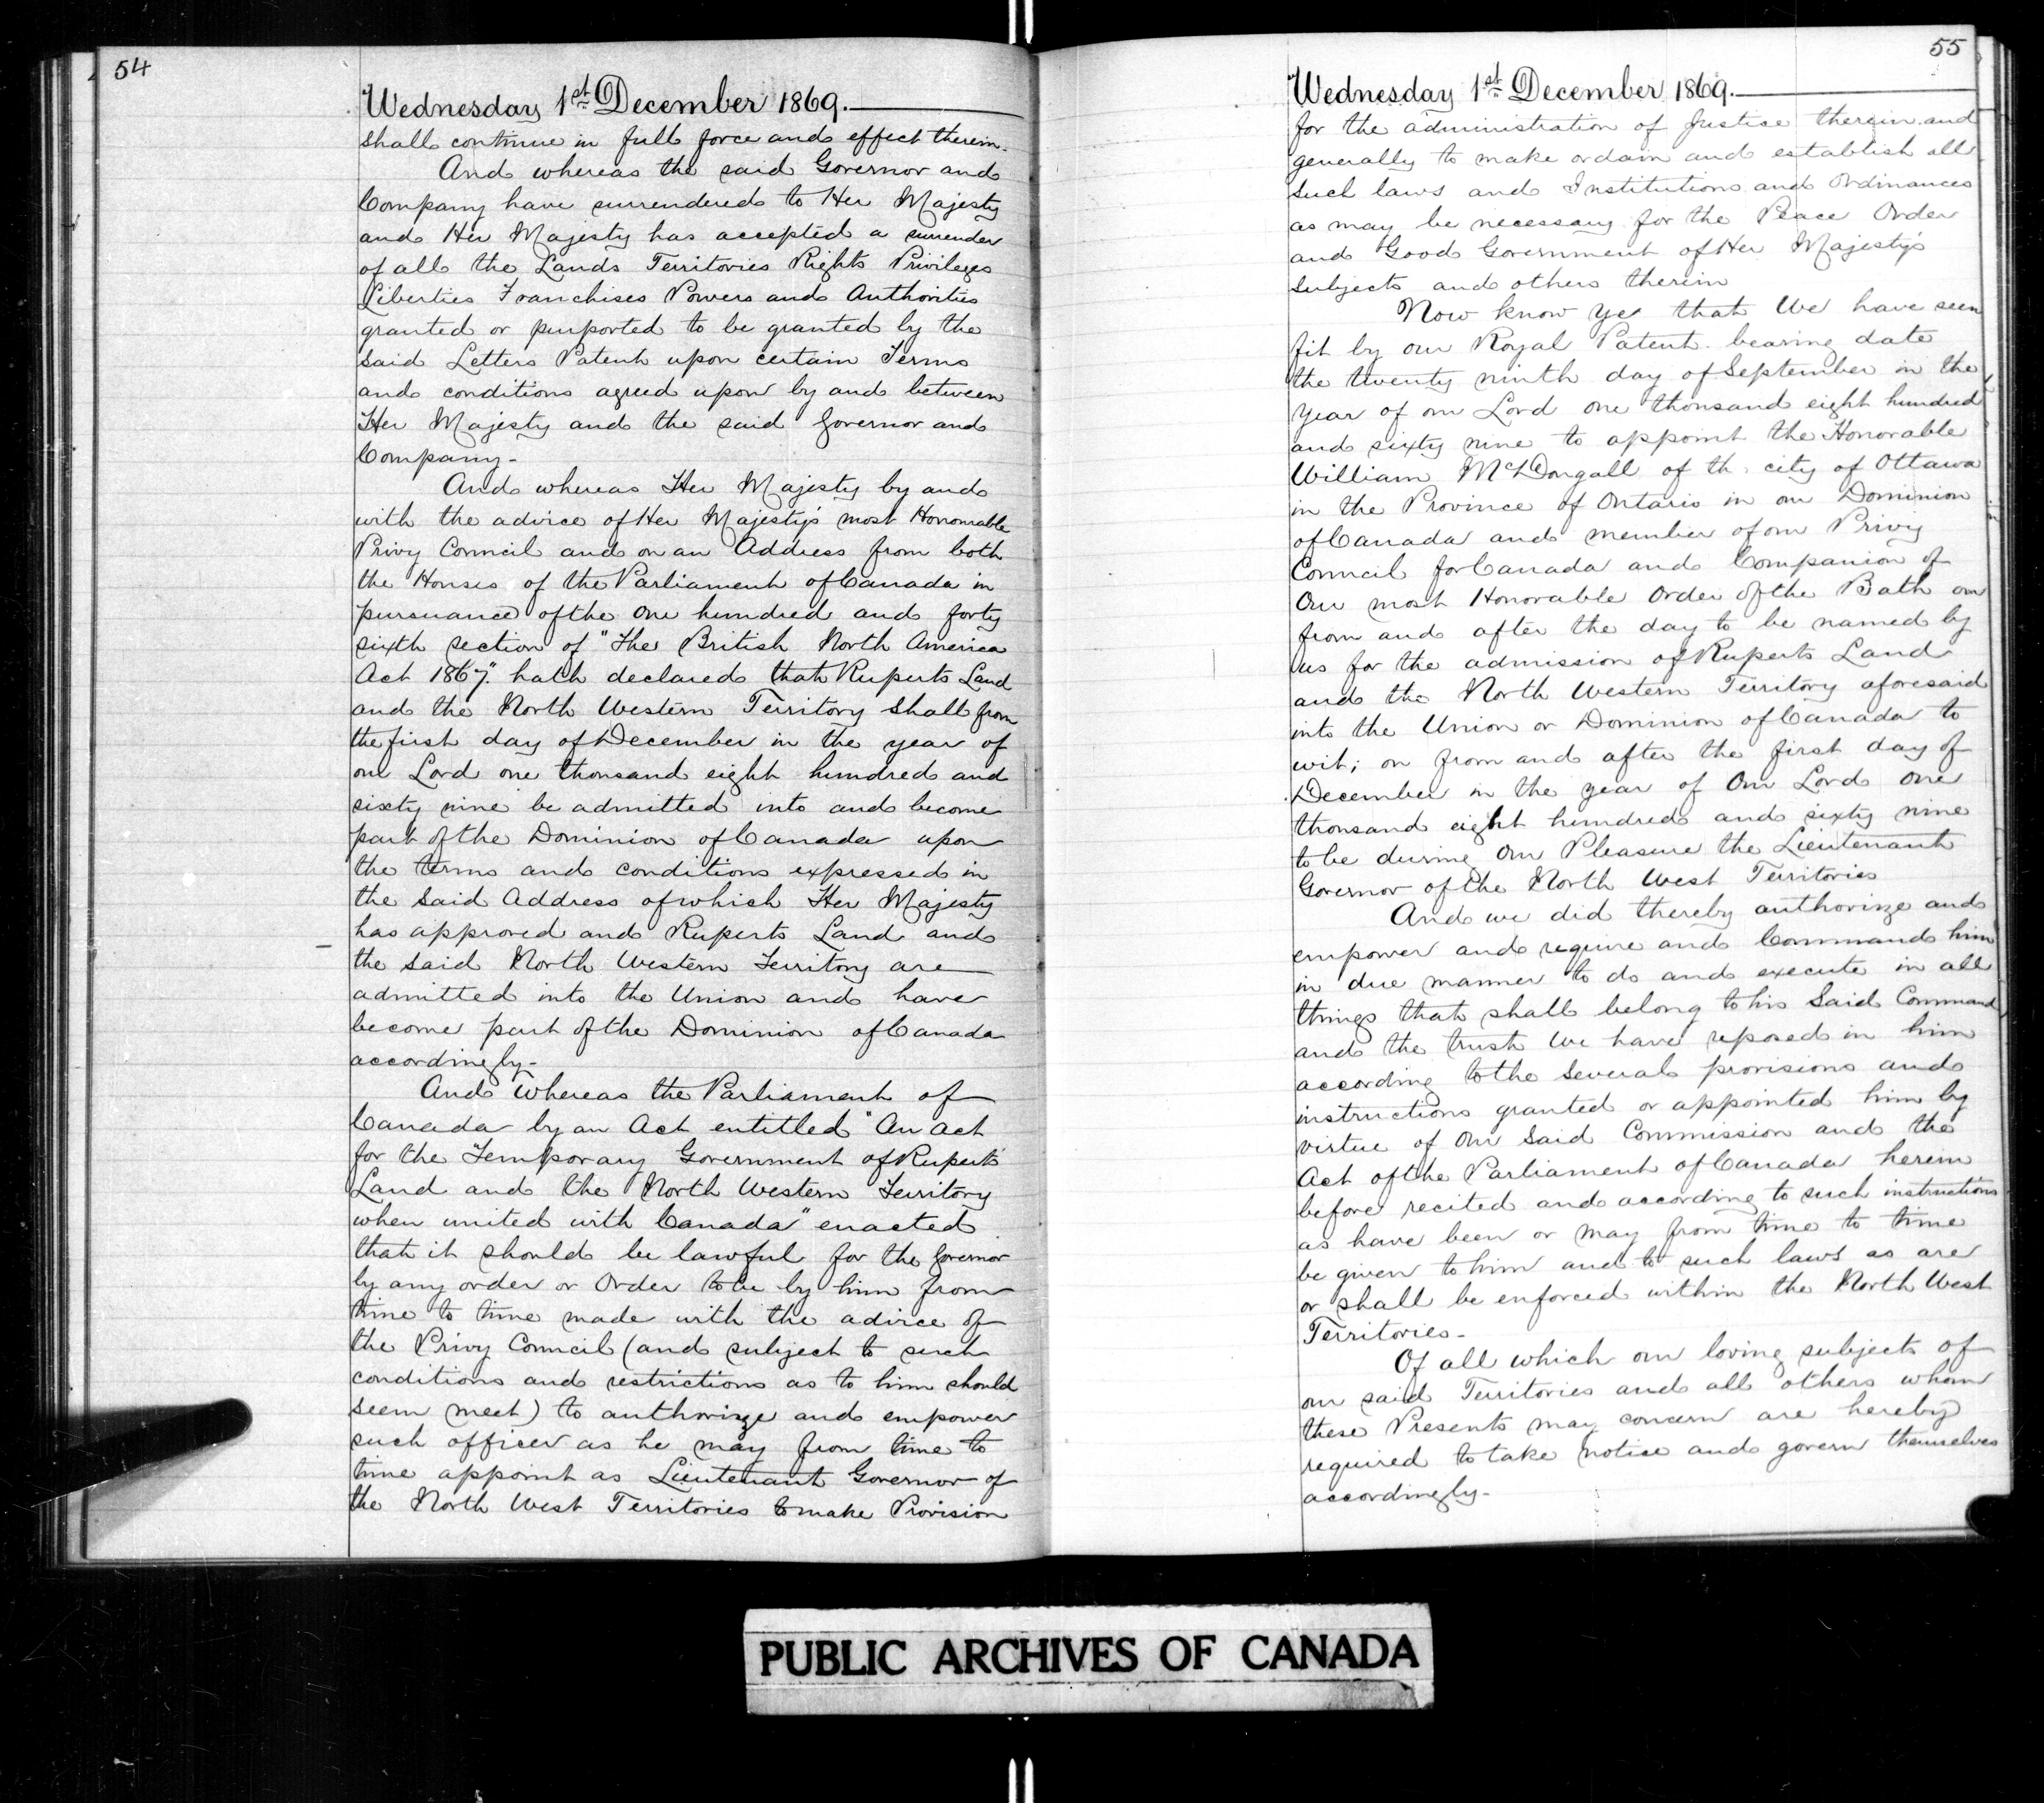 54
Wednesday 1st December 1869.
shall continue in full force and effect therein.
And whereas the said Governor and
Company have surrendered to Her Majesty
and Her Majesty has accepted a surrender
of all the Lands Territories Rights Privileges
Liberties Franchises Powers and Authorities
granted or purported to be granted by the
said Letters Patent upon certain Terms
and conditions agreed upon by and between
Her Majesty and the said Governor and
Company-
And whereas Her Majesty by and
with the advice of Her Majesty's most Honourable
Privy Council and on an Address from both
the Houses of the Parliament of Canada in
pursuance of the One hundred and forty
sixth section of "The British North America
Act 1867." hath declared that Ruperts Land
and the North Western Territory shall from
the first day of December in the year of
our Lord one thousand eight hundred and
sixty nine be admitted into and become
part of the Dominion of Canada upon
the terms and conditions expressed in
the said Address of which Her Majesty
has approved and Ruperts Land and
the said North Western Territory are
admitted into the Union and have
become part of the Dominion of Canada
accordingly-
And Whereas the Parliament of
Canada by an Act entitled "An Act
for the Temporary Government of Rupert's
Land and the North Western Territory
when united with Canada" enacted
that it should be lawful for the Governor
by any order or Order to be by him from
time to time made with the advice of
the Privy Council (and subject to such
conditions and restrictions as to him should
seem meet) to authorize and empower
such officer as he may from time to
time appoint as Lieutenant Governor of
the North West Territories to make Provision
55
Wednesday 1st December 1869.
for the administration of Justice therein and
generally to make ordain and establish all
such laws and Institutions and Ordinances
as may be necessary for the Peace Order
and Good Government of Her Majesty's
subjects and others therein
Now know Ye that We have seen
fit by our Royal Patent bearing date
the twenty ninth day of September in the
year of our Lord one thousand eight hundred
and sixty nine to appoint the Honorable
William McDougall of the city of Ottawa
in the Province of Ontario in our Dominion
of Canada and member of our Privy
Council for Canada and Companion of
Our most Honorable Order of the Bath on
from and after the day to be named by
us for the admission of Ruperts Land
and the North Western Territory aforesaid
into the Union or Dominion of Canada to
wit; on from and after the first day of
December in the year of Our Lord One
thousand eight hundred and sixty nine
to be during Our Pleasure the Lieutenant
Governor of the North West Territories
And we did thereby authorize and
empower and require and Command him
in due manner to do and execute in all
things that shall belong to his Said Command
and the trust We have reposed in him
according to the several provisions and
instructions granted or appointed him by
virtue of Our Said Commission and the
Act of the Parliament of Canada herein
before recited and according to such instructions
as have been or may from time to time
be given to him and to such laws as are
or shall be enforced within the North West
Territories-
Of all which our loving subjects of
our said Territories and all others whom
these Presents may concern are hereby
required to take notice and govern themselves
accordingly-
PUBLIC ARCHIVES OF CANADA